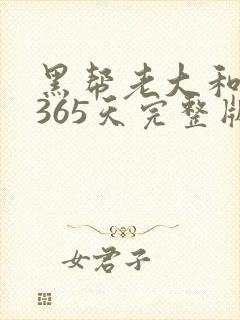 黑帮老大和
365天完整版
女君子